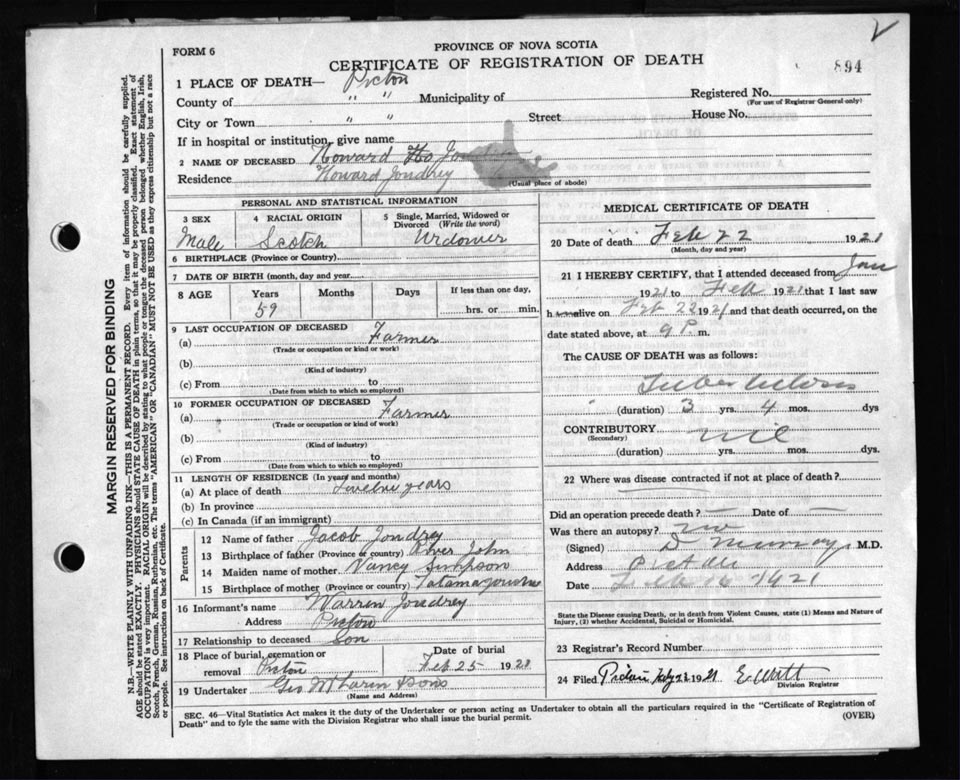 FORM 6
PROVINCE OF NOVA SCOTIA
CERTIFICATE OF REGISTRATION OF DEATH
894
1 PLACE OF DEATH— Pictou
County of " " Municipality of
Registered No.
(For use of Registrar General only)
City or Town " " Street House No.
If in hospital or institution, give name
2 NAME OF DECEASED Howard
Residence Howard Joudrey
(Usual place of abode)
PERSONAL AND STATISTICAL INFORMATION
3 SEX Male
4 RACIAL ORIGIN Scotch
5 Single, Married, Widowed or Divorced (Write the word) Widower
6 BIRTHPLACE (Province or Country)
7 DATE OF BIRTH (month, day and year)
8 AGE Years 59 Months Days If less than one day, hrs. or min.
9 LAST OCCUPATION OF DECEASED
(a) Farmer
(Trade or occupation or kind or work)
(b)
(Kind of industry)
(c) From to
(Date from which to which so employed)
10 FORMER OCCUPATION OF DECEASED
(a) Farmer
(Trade or occupation or kind of work)
(b)
(Kind of industry)
(c) From to
(Date from which to which so employed)
11 LENGTH OF RESIDENCE (In years and months)
(a) At place of death Twelve years
(b) In province
(c) In Canada (if an immigrant)
Parents
12 Name of father Jacob Joudrey
13 Birthplace of father (Province or country) River John
14 Maiden name of mother Nancy Simpson
15 Birthplace of mother (Province or country) Tatamagouche
16 Informant's name Warren Joudrey
Address Pictou
17 Relationship to deceased Son
18 Place of burial, cremation or removal Pictou
Date of burial Feb 25 1921
19 Undertaker Geo Sons
(Name and Address)
MEDICAL CERTIFICATE OF DEATH
20 Date of death Feb 22 1921
(Month, day and year)
21 I HEREBY CERTIFY, that I attended deceased from Jan
1921 to Feb 1921 that I last saw
h alive on Feb 22 1921 and that death occurred, on
date stated above, at 9 P. m.
The CAUSE OF DEATH was as follows:
Tuberculosis
" (duration) 3 yrs. 4 mos. dys
CONTRIBUTORY nil
(Secondary)
(duration) yrs. mos. dys.
22 Where was disease contracted if not at place of death?
Did an operation precede death? — Date of —
Was there an autopsy? no
(Signed) D Murray M.D.
Address
Date Feb 1921
State the Disease causing Death, or in death from Violent Causes, state (1) Means and Nature of
Injury, (2) whether Accidental, Suicidal or Homicidal.
23 Registrar's Record Number
24 Filed Pictou 1921
Division Registrar
SEC. 46—Vital Statistics Act makes it the duty of the Undertaker or person acting as Undertaker to obtain all the particulars required in the "Certificate of Registration of
Death" and to fyle the same with the Division Registrar who shall issue the burial permit.
(OVER)
MARGIN RESERVED FOR BINDING
N.B.—WRITE PLAINLY WITH UNFADING INK—THIS IS A PERMANENT RECORD. Every item of information should be carefully supplied.
AGE should be stated EXACTLY. PHYSICIANS should STATE CAUSE OF DEATH in plain terms, so that it may be properly classified. Exact statement of
OCCUPATION is very important. RACIAL ORIGIN will be described by stating to what people or tongue the deceased person belonged, whether English, Irish,
Scotch, French, German, Russian, Ruthenian, etc. The terms "AMERICAN" or "CANADIAN" MUST NOT BE USED as they express citizenship but not a race
or people. See instructions on back of Certificate.